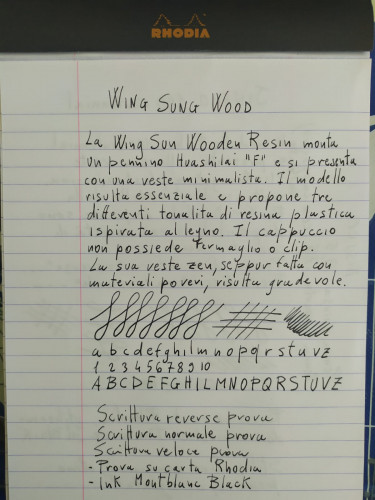 RHODIA
WING SUNG WOOD
La Wing Sun Wooden Resin monta
un pennino Huashilai "F" e si presenta
con una veste minimalista. Il modello
risulta essenziale e propone tre
differenti tonalita di resina plastica
ispirata al legno. Il cappuccio
non possiede fermaglio o clip.
La sua veste zen, seppur fatta con
materiali poveri, risulta gradevole.
a b c d e f g h i l m n o p q r s t u v z
1 2 3 4 5 6 7 8 9 10
A B C D E F G H I L M N O P Q R S T U V Z
Scrittura reverse prova
Scrittura normale prova
Scrittura veloce prova
- Prova su carta Rhodia
- Ink Montblanc Black